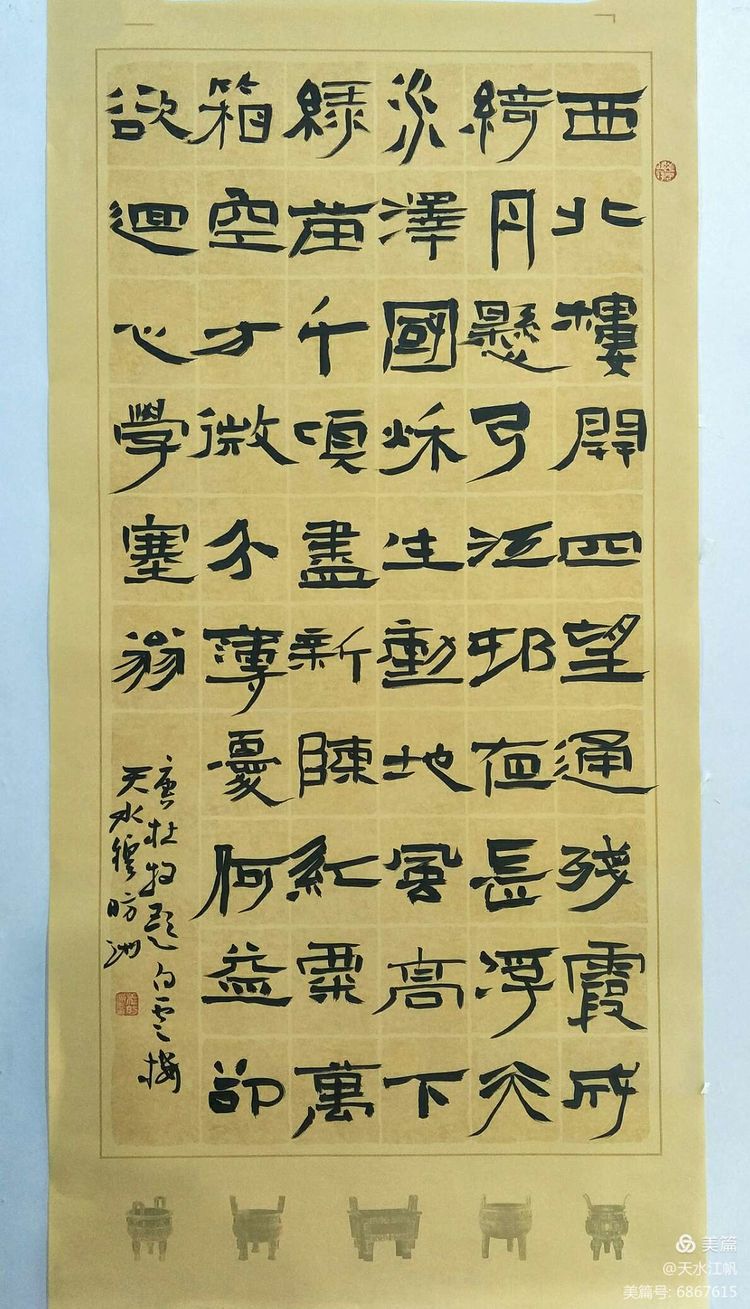 西北樓開四望通殘霞成
綺月懸弓江邨夜長浮天
水澤國秋生動地風高下
綠苗千頃盡新陳紅粟萬
箱空才微分薄憂何益卻
欲迴心學塞翁
唐杜牧題白雲樓
天水昉洲
美篇
@天水江帆
美篇号: 6867615